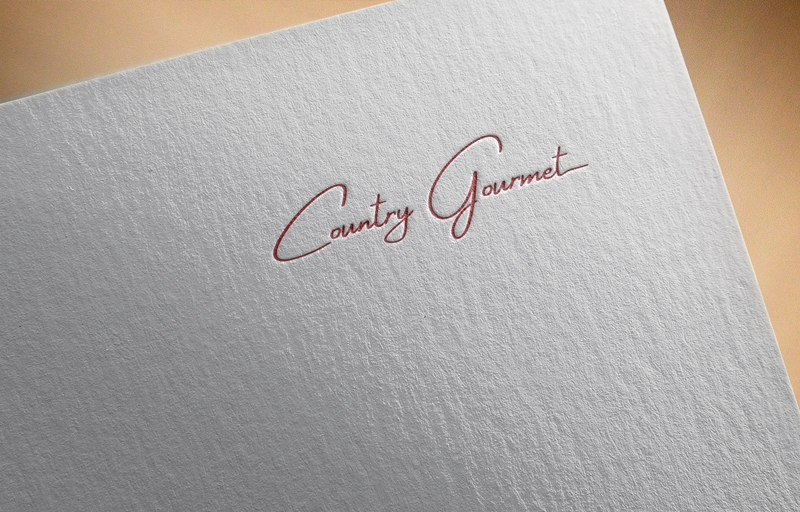 Country Gourmet